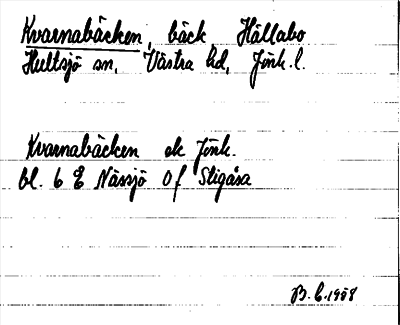 Kvarnabäcken, bäck, Hällabo
Hultsjö sn, Västra hd, Jönk. l.
Kvarnabäcken ek Jönk.
bl. 6 E Nässjö Of Stigåsa
B. C. 1958